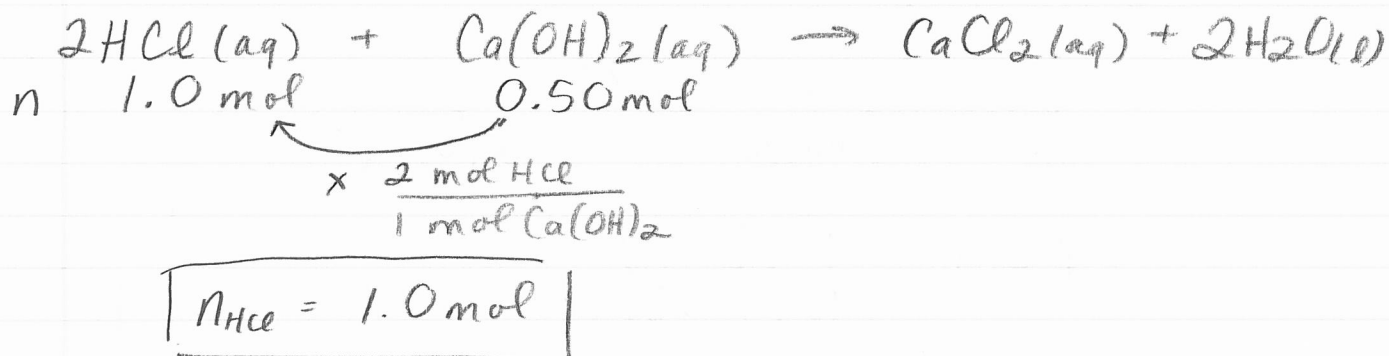 2HCl(aq) + Ca(OH)2(aq) → CaCl2(aq) + 2H2O(l)
n 1.0 mol 0.50 mol
x 2 mol HCl
1 mol Ca(OH)2
nHCl = 1.0 mol